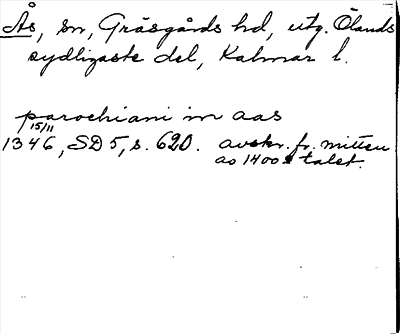 Ås, sn, Gräsgårds hd, utg. Ölands
sydligaste del, Kalmar l.
parochiani in aas
15/11
1346, SD 5, s. 620. avskr. fr. mitten
av 1400-talet.